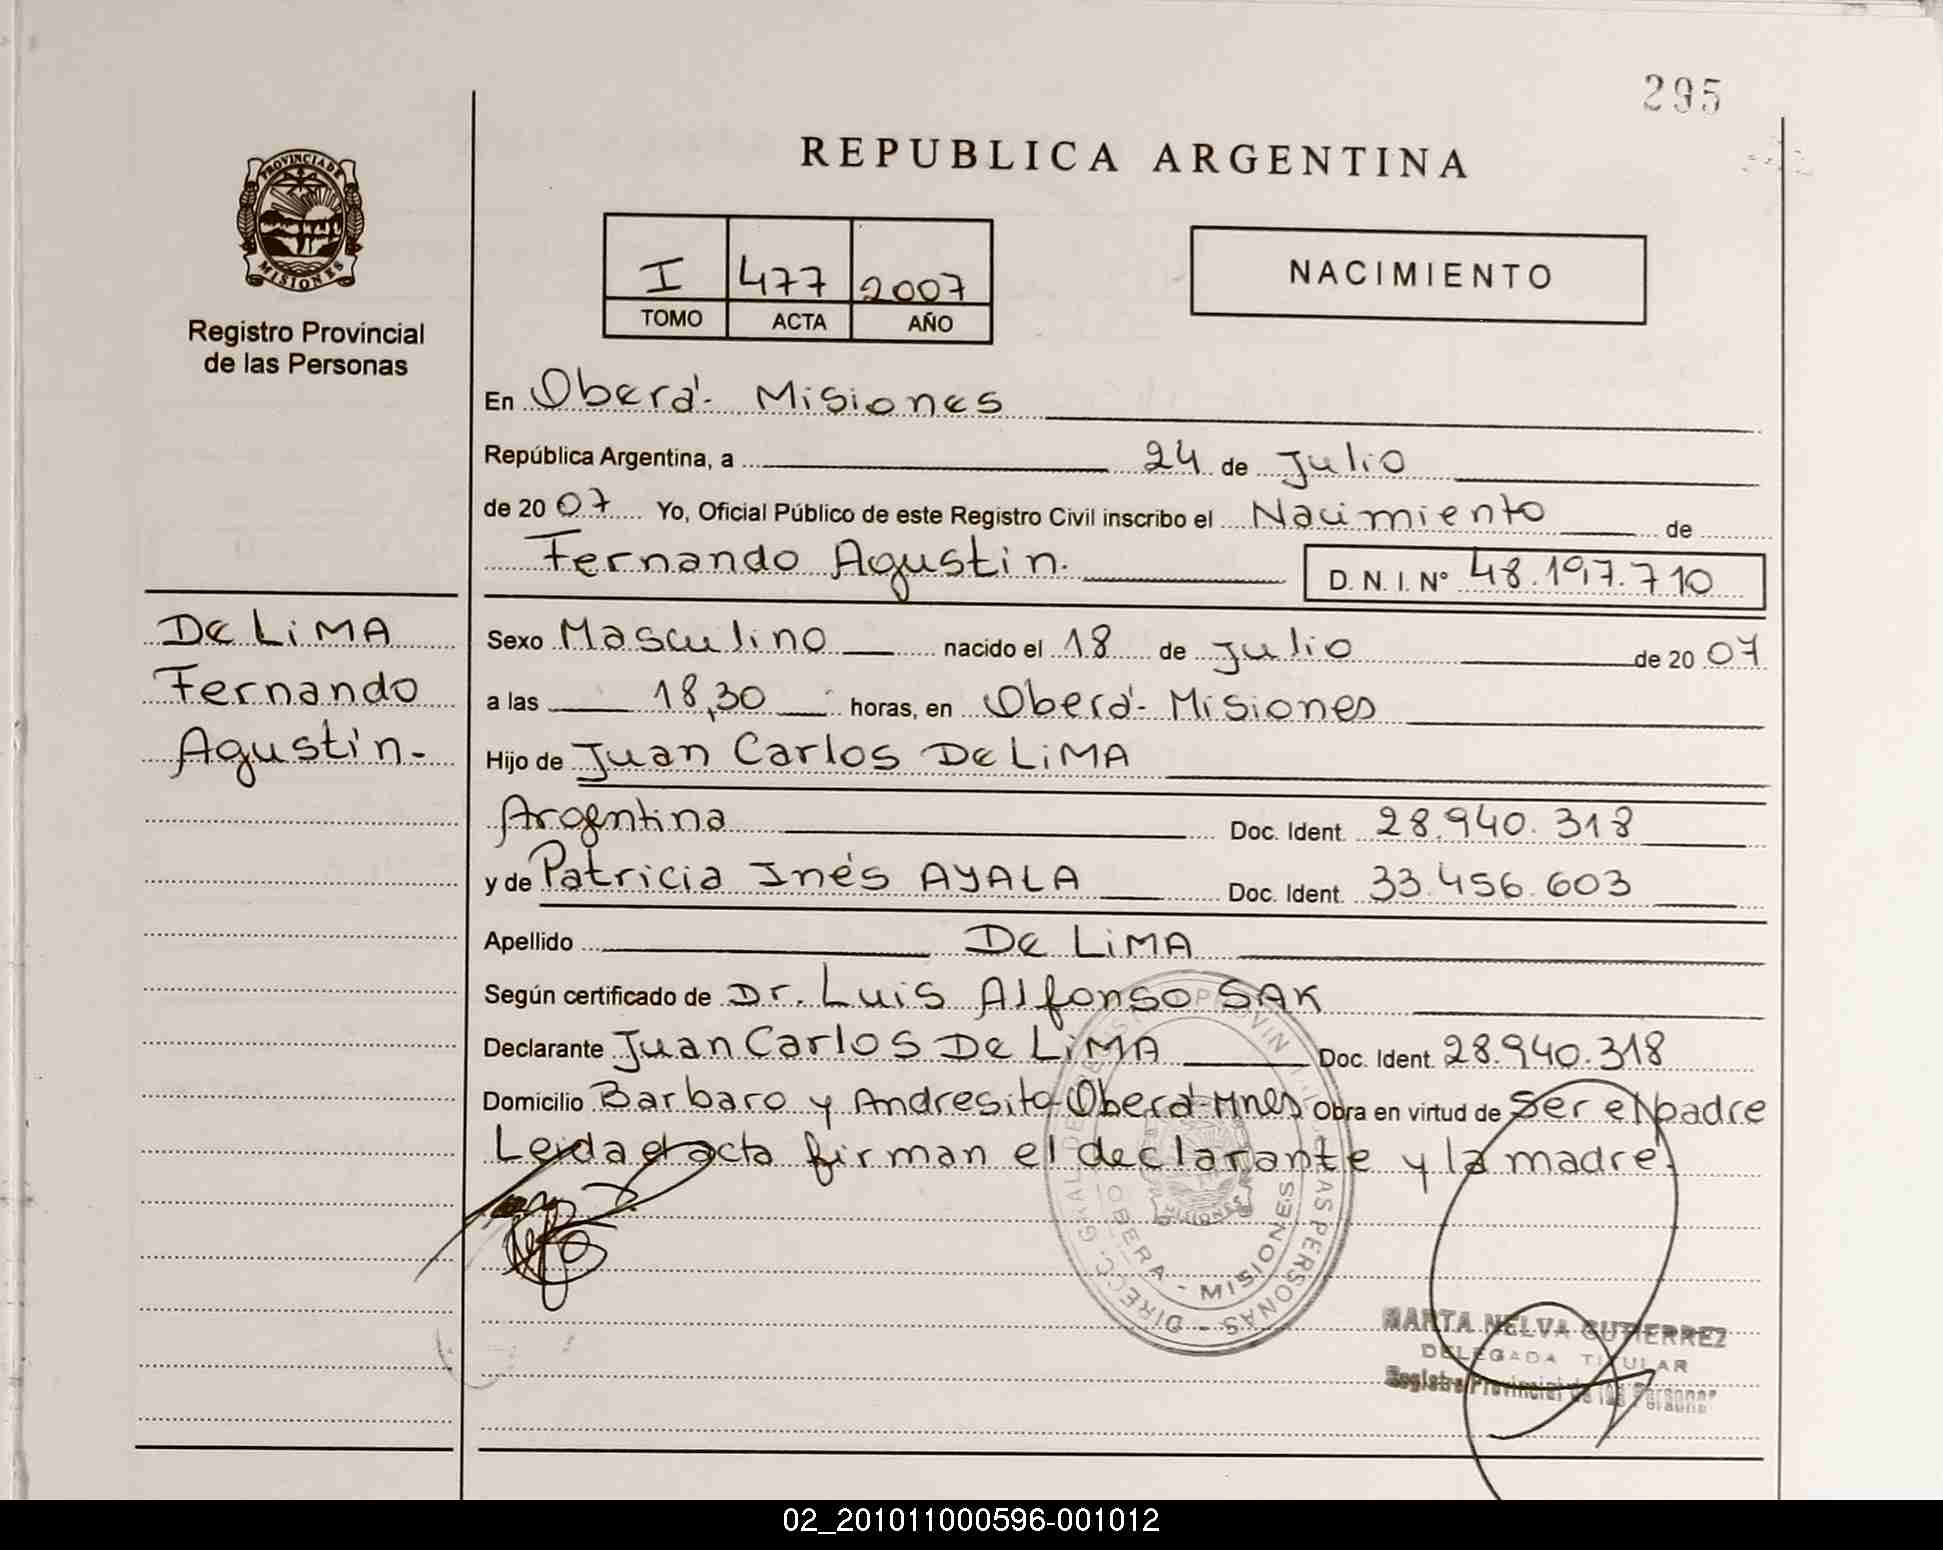 295
REPUBLICA ARGENTINA
PROVINCIA DE
MISIONES
Registro Provincial
de las Personas
I 477 2007
TOMO ACTA AÑO
NACIMIENTO
En Oberá- Misiones
República Argentina, a 24 de Julio
de 20 07 Yo, Oficial Público de este Registro Civil inscribo el Nacimiento de
Fernando Agustín. D. N. I. N° 48.197.710
De LiMA
Fernando
Agustín-
Sexo Masculino nacido el 18 de Julio de 20 07
a las 18,30 horas, en Oberá- Misiones
Hijo de Juan Carlos De LiMA
Argentina Doc. Ident. 28.940.318
y de Patricia Inés AYALA Doc. Ident. 33.456.603
Apellido De LiMA
Según certificado de Dr. Luis Alfonso SAK
Declarante Juan Carlos De LiMA Doc. Ident. 28.940.318
Domicilio Barbaro y Andresito-Oberá-Mnes Obra en virtud de Ser el padre
Leida el acta firman el declarante y la madre.
OBERA - MISIONES
MARTA NELVA GUTIERREZ
DELEGADA TITULAR
Registro Provincial de las Personas
02_201011000596-001012